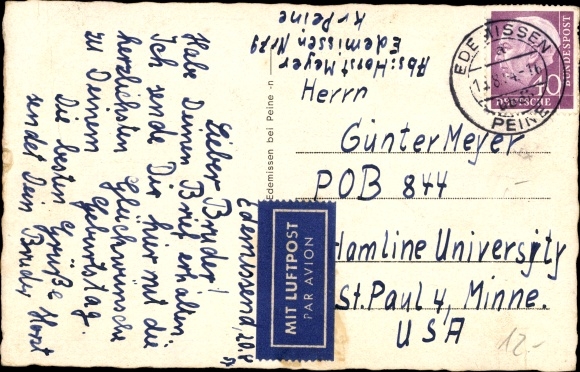 Abs: Horst Meyer
Edemissen Nr 79
Kr Peine
Edemissen, 20.8
Lieber Bruder!
Habe Deinen Brief erhalten.
Ich sende Dir hier mit die
herzlichsten Glückwünsche
zu Deinem Geburtstag
Die besten Grüße
sendet Dein Bruder Horst
Edemissen bei Peine
MIT LUFTPOST
PAR AVION
EDEMISSEN
PEINE
DEUTSCHE
BUNDESPOST
40
Herrn
Günter Meyer
POB 844
Hamline University
St. Paul 4, Minne.
USA
12.-